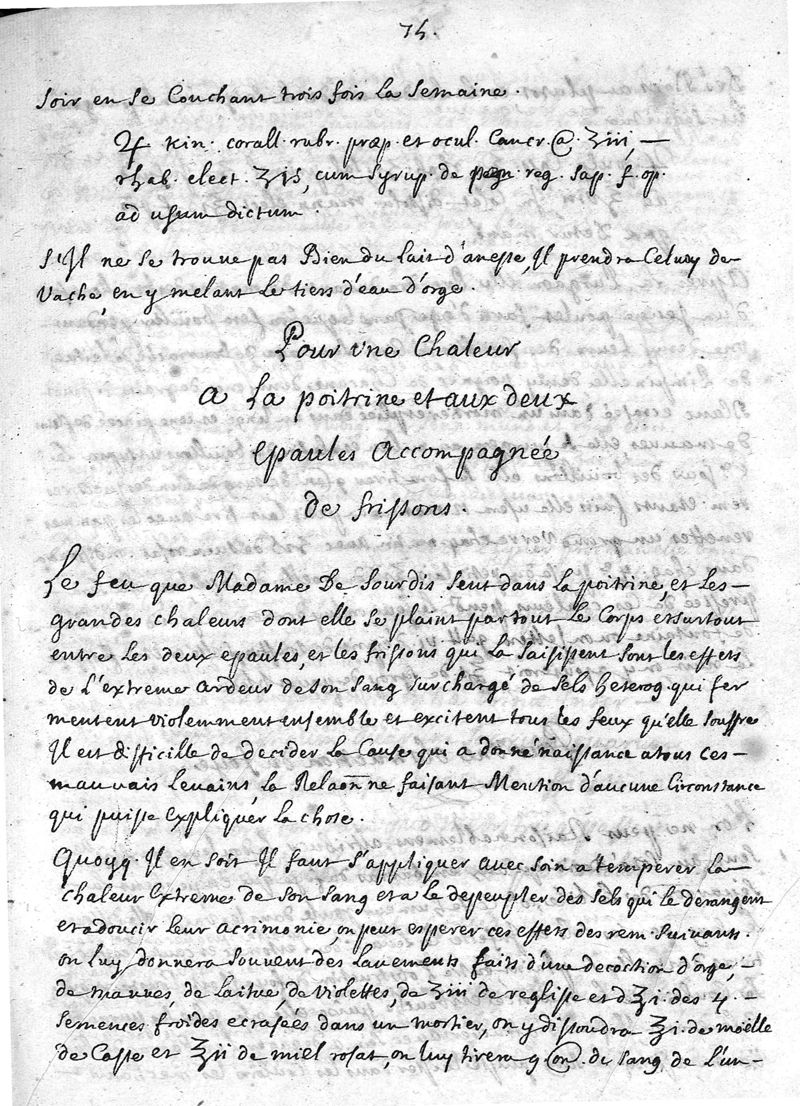 74.
soir en se Couchant trois fois la semaine.
♃ Kin. corall. rubr. præp. et ocul. Cancr. @. ʒiii, —
rhab. elect. ʒis, cum syrup. de reg. sap. f. op.
ad usum dictum.
S'Il ne se trouve pas Bien du lait d'anesse, Il prendra Celuy de
Vache, en y mélant Le tiers d'eau d'orge.
Pour une Chaleur
a La poitrine et aux deux
epaules accompagnée
de frissons.
Le feu que Madame De Sourdis sent dans la poitrine, et Les —
grandes chaleurs dont elle se plaint partout Le Corps et surtout
entre Les deux epaules, et les frissons qui La saisissent sont les effets
de L'extreme ardeur de son sang surchargé de sels heterog. qui fer
mentent violemment ensemble et excitent tous les feux qu'elle souffre
Il est difficille de decider la Cause qui a donné naissance a tous ces —
mauvais levains, la Relaõn ne faisant Mention d'aucune Circonstance
qui puisse expliquer la chose.
Quoyq. Il en soit Il faut s'appliquer avec soin a temperer La
chaleur extreme de son sang et a le depeupler des sels qui le derangent
et adoucir leur acrimonie, on peut esperer ces effets des rem. suivants.
on luy donnera souvent des lavements faits d'une decoction d'orge, —
de mauves, de laitue, de violettes, de ʒiii de reglisse et d ℥i. des 4. —
semences froides ecrasées dans un mortier, on y dissoudra ℥i. de moëlle
de Casse et ℥ii de miel rosat, on luy tirera 9 on. du sang de L'un —